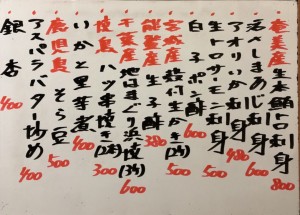 奄美産生本鮪トロ刺身 800
活〆しまあじ刺身 600
アオリいか刺身 480
生トロサーモン刺身 500
白子ポン酢 600
宮城産殻付生かき 500
能登産生子酢 380
千葉産地はまぐり浜焼 600
ハツ串焼き(2本) 300
いかと里芋煮 400
鹿児島そら豆 500
アスパラバター炒め 400
銀杏 400